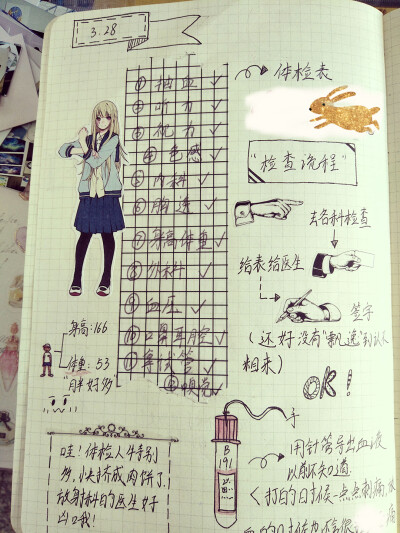 3.28
① 抽血 ✓
② 听力 ✓
③ 视力 ✓
④ 色感 ✓
⑤ 内科 ✓
⑥ 胸透 ✓
⑦ 身高体重 ✓
⑧ 外科 ✓
⑨ 血压 ✓
⑩ 口鼻耳腔 ✓
⑪ 等试管 ✓
身高:166
体重:53
胖好多
哇!体检人特别
多,快挤成肉饼了.
放射科的医生好
凶哦!
体检表
"检查流程"
去各科检查
给表给医生
签字
(还好没有"飘逸"到认不
出来)
OK!
B
191
用针管导出血液
〈打的时候一点点刺痛,